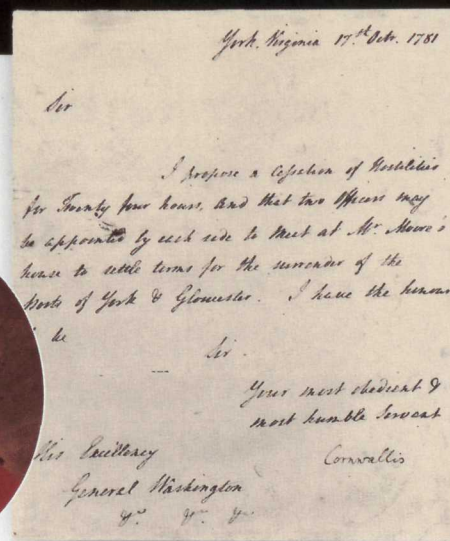 York, Virginia 17th Octr. 1781
Sir
I propose a Cessation of Hostilities
for Twenty four hours, and that two Officers may
be appointed by each side to meet at Mr. Moore's
house to settle terms for the surrender of the
Posts of York & Gloucester. I have the honour
be
Sir
Your most obedient &
most humble Servant
Cornwallis
His Excellency
General Washington
&c. &c. &c.